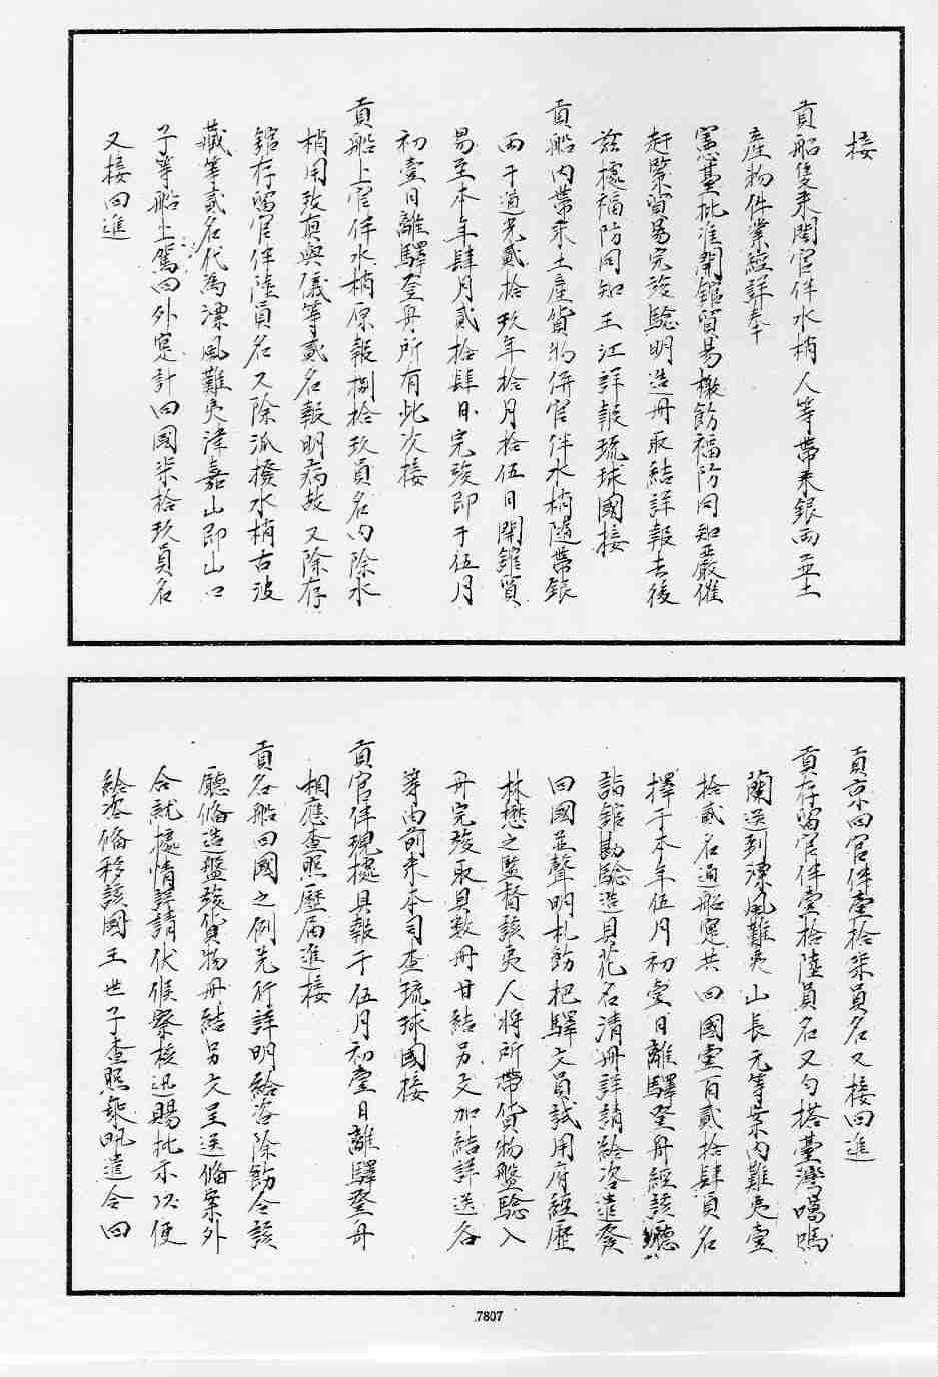 接
貢船隻來閩官伴水梢人等帶來銀両並土
產物件業經詳奉
憲臺批准開館貿易檄飭福防同知嚴催
赶緊貿易完竣驗明造冊取結詳報去後
茲據福防同知王江詳報琉球國接
貢船內帶來土產貨物併官伴水梢隨帶銀
両于道光貳拾玖年拾月拾伍日開舘貿
易至本年肆月貳拾肆日完竣即于伍月
初壹日離驛登舟所有此次接
貢船上官伴水梢原報捌拾玖員名內除水
梢用致真與儀等貳名報明病故又除存
舘存留官伴陸員名又除派撥水梢古波
藏等貳名代為漂風難夷津嘉山即山口
子等船上駕回外寔計回國柒拾玖員名
又接回進
貢京回官伴壹拾柒員名又接回進
貢存留官伴壹拾陸員名又勻搭臺灣噶嗎
蘭送到漂風難夷山長元等案內難夷壹
拾貳名通船寔共回國壹百貳拾肆員名
擇于本年伍月初壹日離驛登舟經該廳
詣舘勘驗造具花名清冊詳請給咨遣發
回國並聲明札飭把驛文員試用府經歷
林懋之監督該夷人將所帶貨物盤驗入
冊完竣取具數冊甘結另文加結詳送各
等由前來本司查琉球國接
貢官伴現據具報于伍月初壹日離驛登舟
相應查照歷屆進接
貢名船回國之例先行詳明給咨除飭令該
廳備造盤驗貨物冊結另文呈送備案外
合就據情詳請伏候察核迅賜批示以便
給咨備移該國王世子查照飛帆遣令回
7807